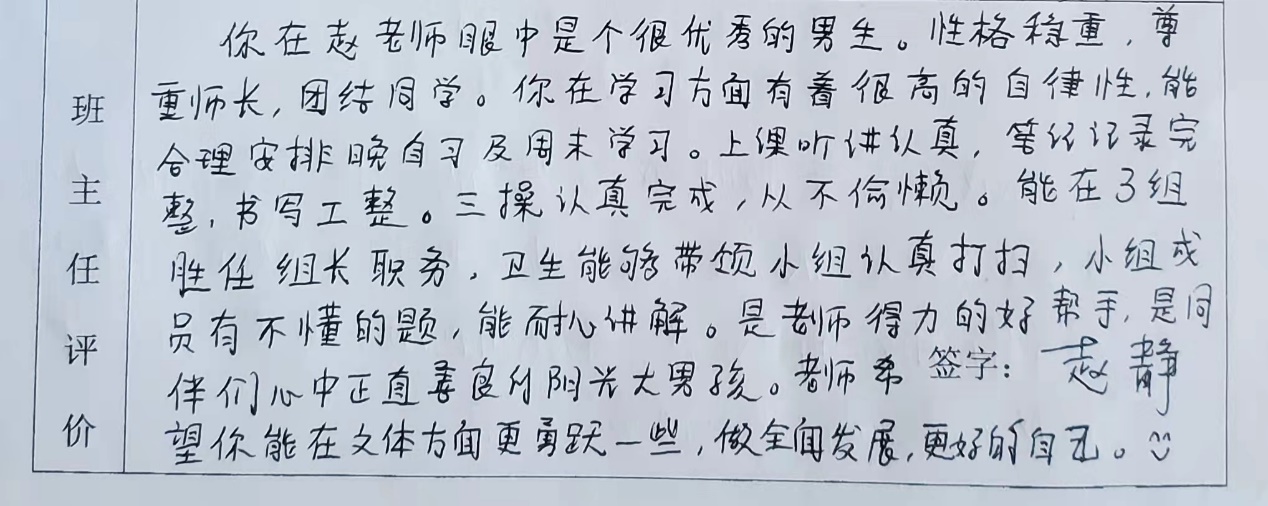 班主任评价
你在赵老师眼中是个很优秀的男生。性格稳重,尊
重师长,团结同学。你在学习方面有着很高的自律性,能
合理安排晚自习及周末学习。上课听讲认真,笔记记录完
整,书写工整。三操认真完成,从不偷懒。能在3组
胜任组长职务,卫生能够带领小组认真打扫,小组成
员有不懂的题,能耐心讲解。是老师得力的好帮手,是同
伴们心中正直善良的阳光大男孩。老师希
签字:赵静
望你能在文体方面更勇跃一些,做全面发展,更好的自己。